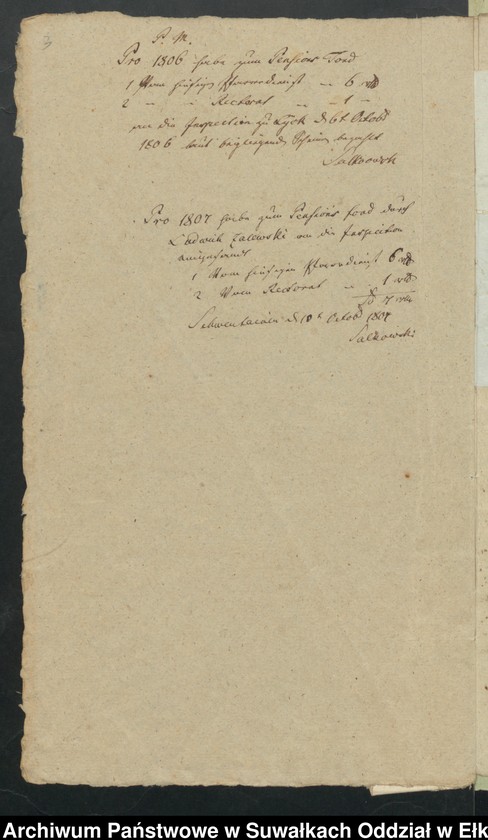 P. M.
Pro 1806 habe zum Pensions Fond
1 Vom hiesigen Pfarrdienst — 6 rtl
2 — — Rectorat — 1 —
an die Inspection zu Lyck d 6t Octobr
1806 laut beyliegendem Schein bezahlt
Salkowski
Pro 1807 habe zum Pensions fond durch
Ludwich Zalewski an die Inspection
1 Vom hiesigen Pfarrdienst 6 rtl
2 Vom Rectorat — 1 rtl
7 rtl
Schwentainen d 10t Octobr 1807
Salkowski
Archiwum Państwowe w Suwałkach Oddział w Ełk